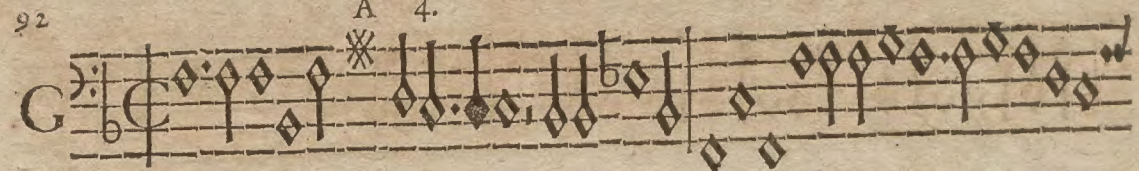 92
A 4.
G